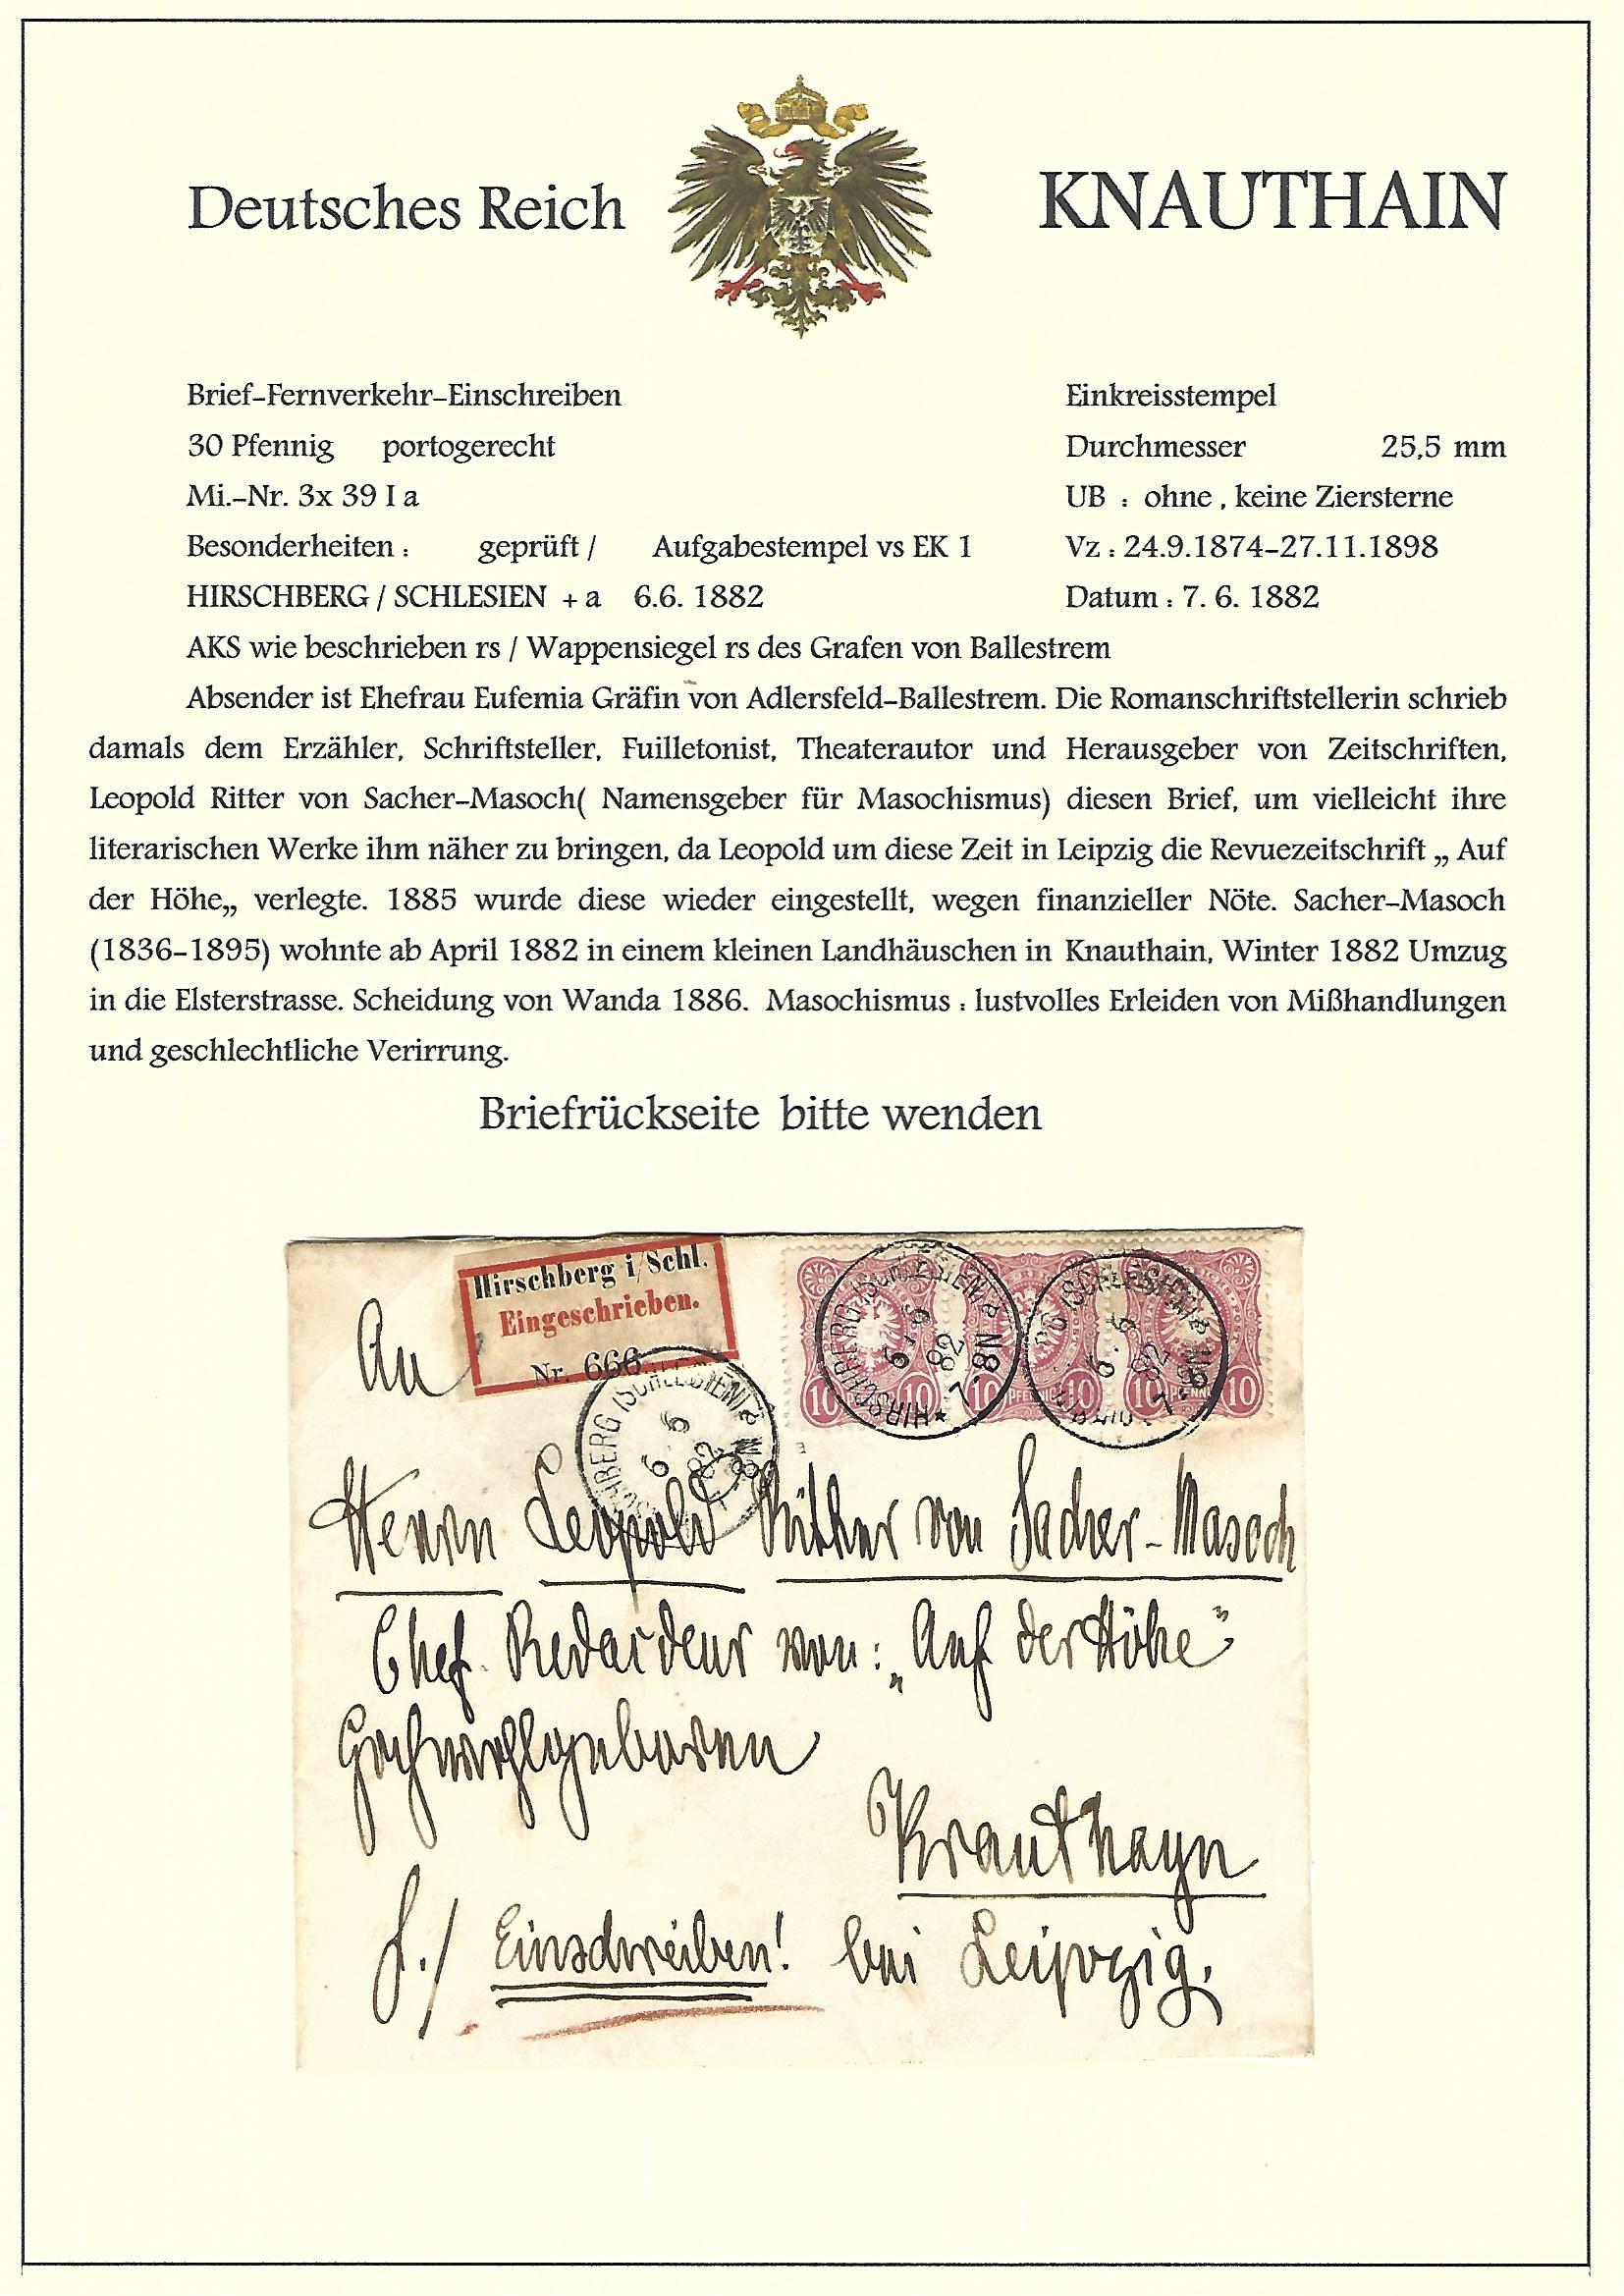 Deutsches Reich
KNAUTHAIN
Brief-Fernverkehr-Einschreiben
Einkreisstempel
30 Pfennig portogerecht
Durchmesser 25,5 mm
Mi.-Nr. 3x 39 I a
UB : ohne , keine Ziersterne
Besonderheiten : geprüft / Aufgabestempel vs EK 1
Vz : 24.9.1874-27.11.1898
HIRSCHBERG / SCHLESIEN + a 6.6. 1882
Datum : 7. 6. 1882
AKS wie beschrieben rs / Wappensiegel rs des Grafen von Ballestrem
Absender ist Ehefrau Eufemia Gräfin von Adlersfeld-Ballestrem. Die Romanschriftstellerin schrieb
damals dem Erzähler, Schriftsteller, Fuilletonist, Theaterautor und Herausgeber von Zeitschriften,
Leopold Ritter von Sacher-Masoch( Namensgeber für Masochismus) diesen Brief, um vielleicht ihre
literarischen Werke ihm näher zu bringen, da Leopold um diese Zeit in Leipzig die Revuezeitschrift „ Auf
der Höhe„ verlegte. 1885 wurde diese wieder eingestellt, wegen finanzieller Nöte. Sacher-Masoch
(1836-1895) wohnte ab April 1882 in einem kleinen Landhäuschen in Knauthain, Winter 1882 Umzug
in die Elsterstrasse. Scheidung von Wanda 1886. Masochismus : lustvolles Erleiden von Mißhandlungen
und geschlechtliche Verirrung.
Briefrückseite bitte wenden
Hirschberg i/Schl.
Eingeschrieben.
Nr. 666
HIRSCHBERG (SCHLESIEN) a
6 6
82
7-8N
10 PFENNIG 10
An
Herrn Leopold Ritter von Sacher-Masoch
Chef-Redacteur von: „Auf der Höhe"
Hochwohlgeboren
Krauthayn
Einschreiben! bei Leipzig.